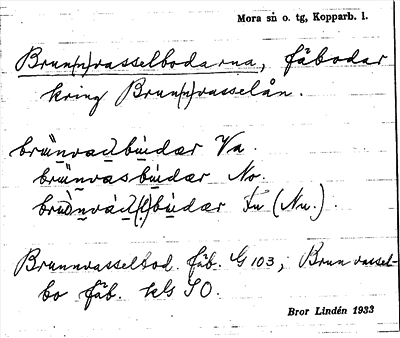 Mora sn o. tg, Kopparb. l.
Brun(n)vasselbodarna, fäbodar
kring Brun(n)vasselån.
brunvadbúdær Va.
brunvasbúdær No.
brunvád(l)búdær (Nu.).
Brunnvasselbod. fäb. G 103; Brunvassel-
bo fäb. kls SO.
Bror Lindén 1933